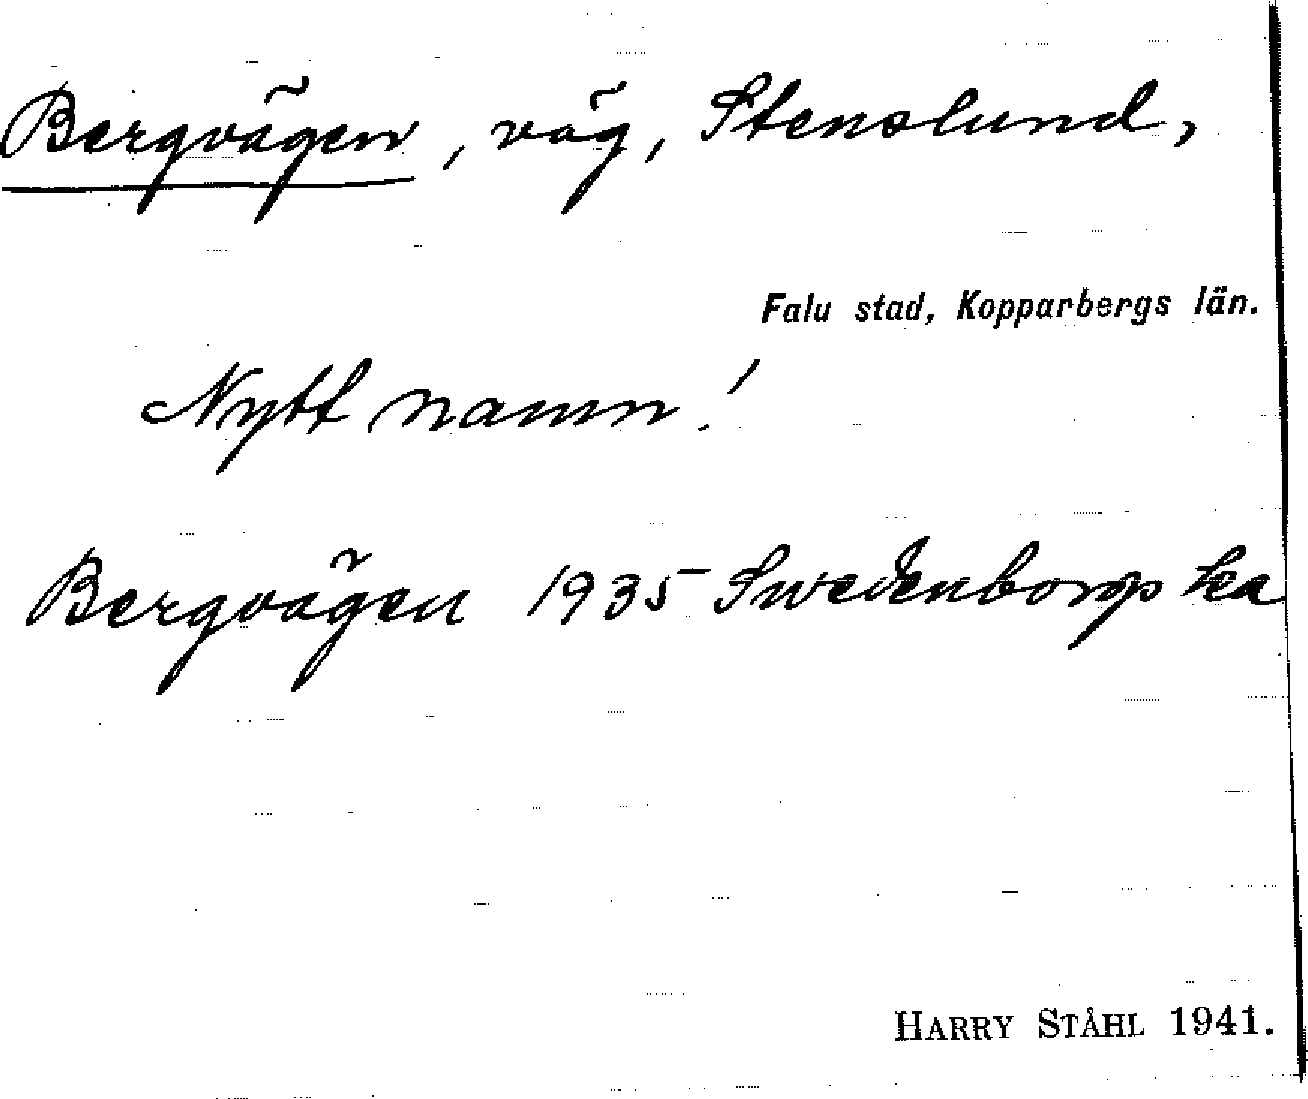 Bergvägen, väg, Stenslund,
Falu stad, Kopparbergs län.
Nytt namn!
Bergvägen 1935 Swedenborg ka
HARRY STÅHL 1941.